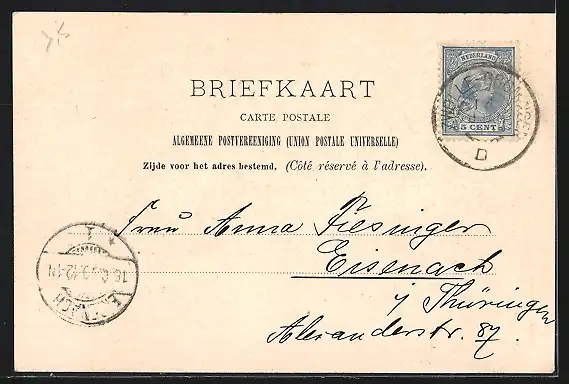 NEDERLAND
5 CENT
BRIEFKAART
CARTE POSTALE
ALGEMEENE POSTVEREENIGING (UNION POSTALE UNIVERSELLE)
Zijde voor het adres bestemd. (Côté réservé à l'adresse).
D
Frau Anna Fiesinger
Eisenach
i/ Thüringen
Alexanderstr. 87.